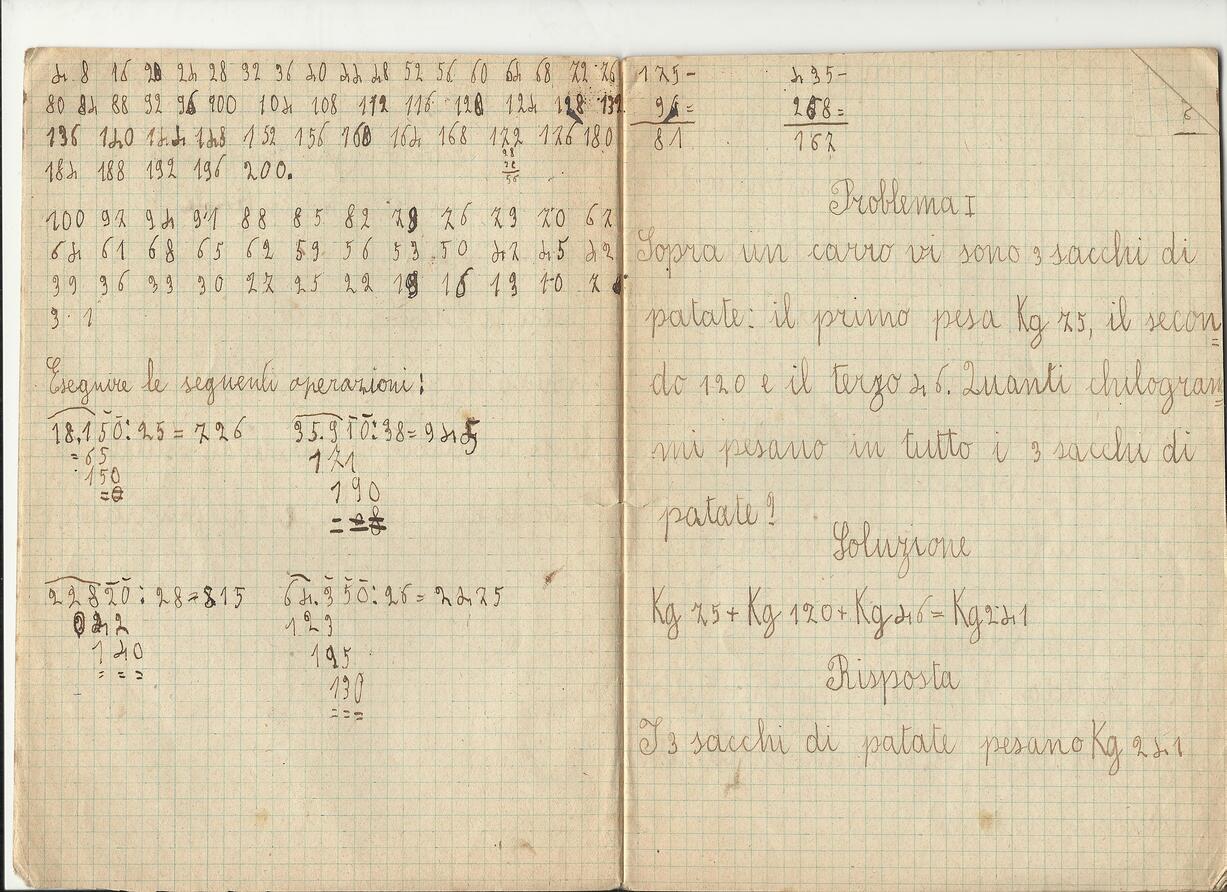 4 8 16 20 24 28 32 36 40 44 48 52 56 60 64 68 72 76
80 84 88 92 96 100 104 108 112 116 120 124 128 132
136 140 144 148 152 156 160 164 168 172 176 180
184 188 192 196 200.
28
28
56
100 97 94 91 88 85 82 79 76 73 70 67
64 61 68 65 62 59 56 53 50 47 45 42
39 36 33 30 27 25 22 19 16 13 10 7
3 1
Eseguire le seguenti operazioni!
18.150:25=726
=65
150
=0
35.910:38=945
171
190
22820:28=815
042
140
= = =
64.350:26=2475
123
195
130
===
175-
96=
81
435-
268=
167
6
Problema I
Sopra un carro vi sono 3 sacchi di
patate: il primo pesa Kg 75, il secon=
do 120 e il terzo 46. Quanti chilogram=
mi pesano in tutto i 3 sacchi di
patate?
Soluzione
Kg 75+Kg 120+Kg 46=Kg 241
Risposta
I 3 sacchi di patate pesano Kg 241